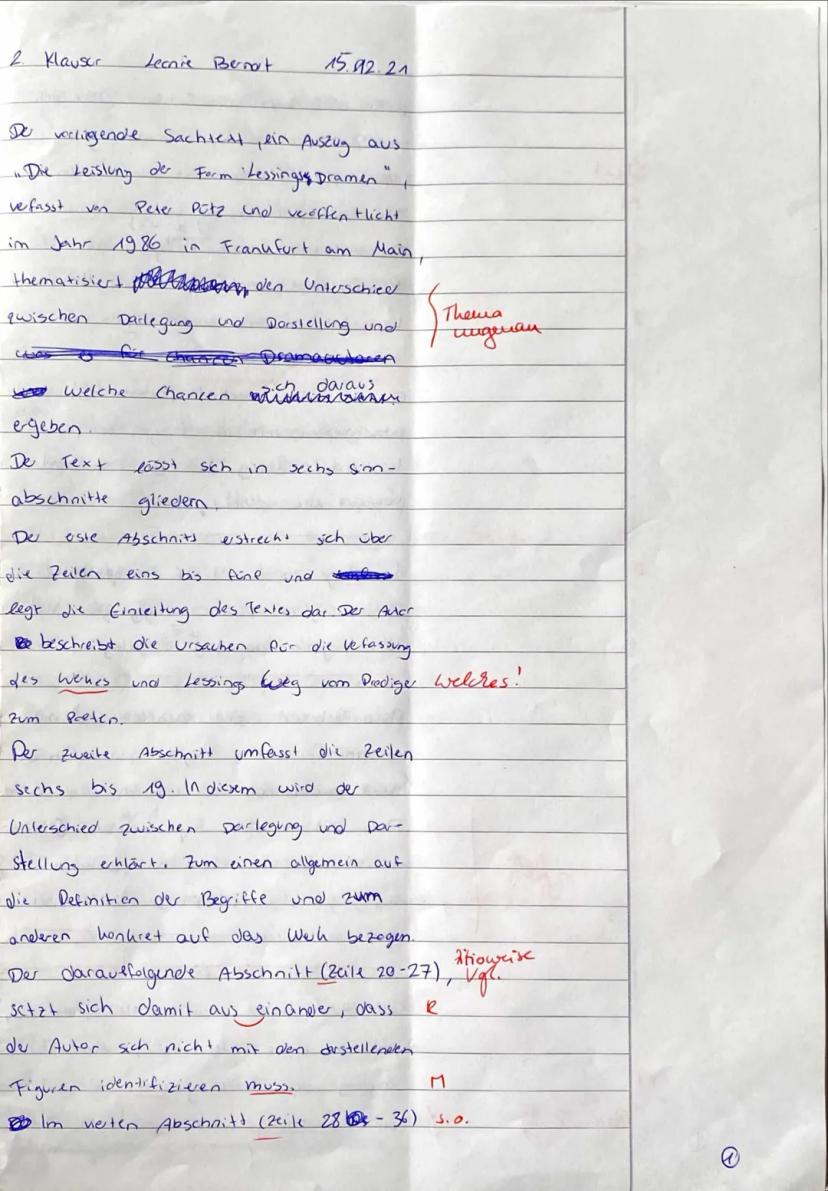 2. Klausur Leonie Bernot 15.12.21
Der vorliegende Sachtext, ein Auszug aus
„Die Leistung der Form Lessings Dramen",
verfasst von Peter Pütz und veröffentlicht
im Jahr 1986 in Frankfurt am Main,
thematisiert den Unterschied
zwischen Darlegung und Darstellung und
Thema
ungenau
was es für Chancen Dramaautoren
welche Chancen sich daraus
ergeben.
Der Text lässt sich in sechs Sinn-
abschnitte gliedern.
Der erste Abschnitt erstreckt sich über
die Zeilen eins bis fünf und
legt die Einleitung des Textes dar. Der Autor
beschreibt die Ursachen für die Verfassung
des Werkes und Lessings Weg vom Prediger welches!
zum Poeten.
Der zweite Abschnitt umfasst die Zeilen
sechs bis 19. In diesem wird der
Unterschied zwischen Darlegung und Dar-
stellung erklärt. Zum einen allgemein auf
die Definition der Begriffe und zum
anderen konkret auf das Werk bezogen.
Der darauffolgende Abschnitt (Zeile 20-27), Zitierweise Vgl.
setzt sich damit aus einander, dass R
der Autor sich nicht mit den darstellenden
Figuren identifizieren muss. M
Im vierten Abschnitt (Zeile 28 - 36) s.o.
1